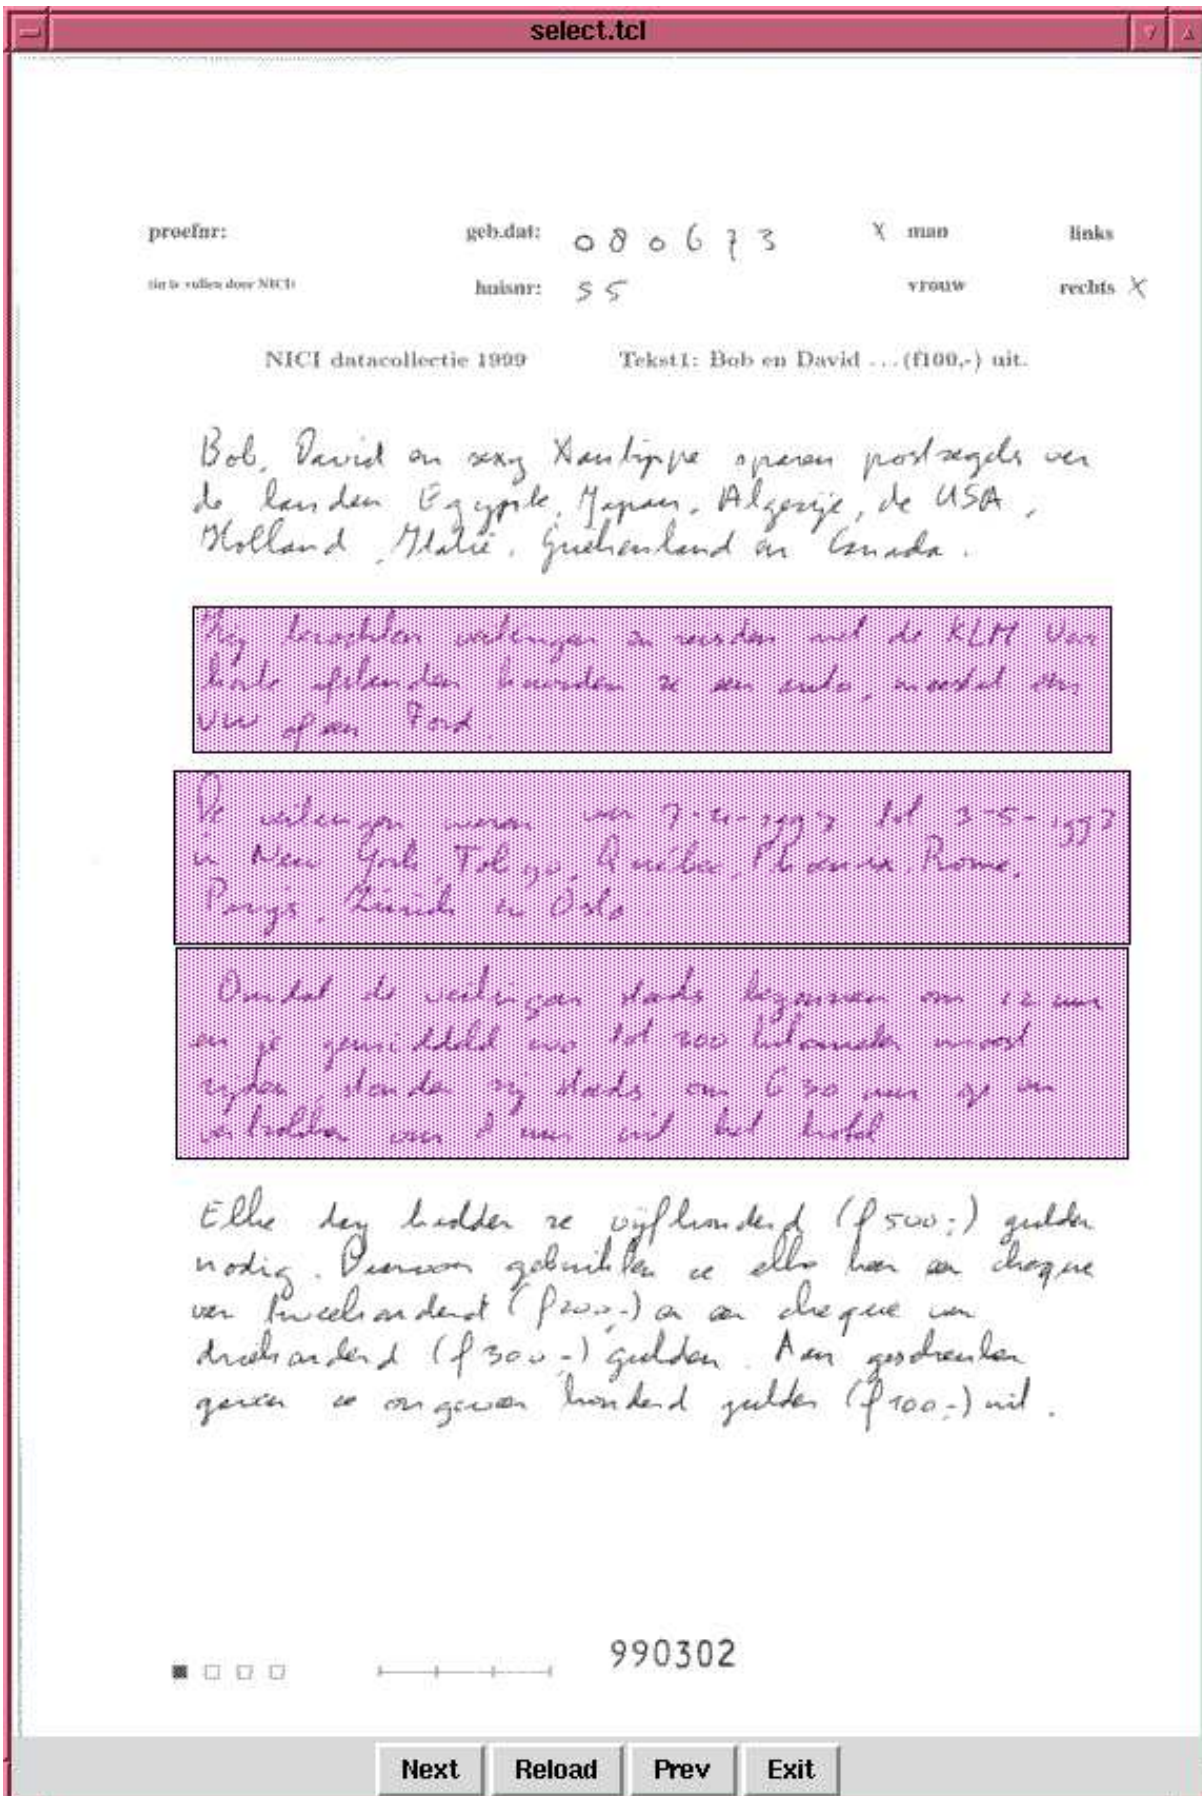 select.tcl
proefnr: geb.dat: 080673 X man links
(in te vullen door NICI) huisnr: 55 vrouw rechts X
NICI datacollectie 1999 Tekst1: Bob en David ...(f100,-) uit.
Bob, David en sexy Xantippe sparen postzegels van
de landen Egypte, Japan, Algerije, de USA,
Holland, Italië, Griekenland en Canada.
Zij bezochten veilingen en reisden met de KLM Voor
korte afstanden huurden ze een auto, meestal een
VW of een Ford.
De veilingen waren van 7-4-1993 tot 3-5-1993
in New York, Tokyo, Québec, Phoenix, Rome,
Parijs, Zürich en Oslo.
Omdat de veilingen steeds begonnen om 12 uur
en je gemiddeld tot 200 kilometer moest
rijden, stonden zij steeds om 6 30 uur op en
vertrokken om 8 uur uit het hotel
Elke dag hadden ze vijfhonderd (f500,-) gulden
nodig. Daarvoor gebruikten ze elke keer een cheque
van tweehonderd (f200,-) en een cheque van
driehonderd (f300,-) gulden. Aan geschenken
gaven ze ongeveer honderd gulden (f100,-) uit.
990302
Next Reload Prev Exit